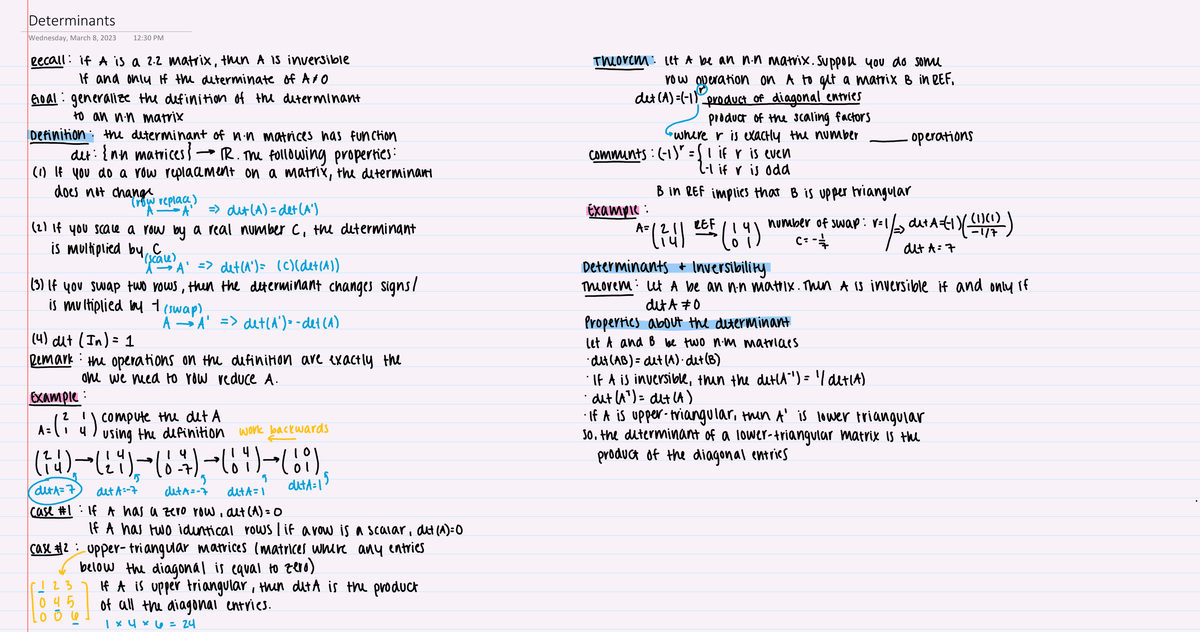 Determinants
Wednesday, March 8, 2023 12:30 PM
Recall: if A is a 2·2 matrix, then A is inversible
if and only if the determinate of A≠0
Goal: generalize the definition of the determinant
to an n·n matrix
Definition: the determinant of n·n matrices has function
det: {n·n matrices} → ℝ. The following properties:
(1) If you do a row replacement on a matrix, the determinant
does not change
(row replace)
A → A' => det(A) = det(A')
(2) If you scale a row by a real number C, the determinant
is multiplied by C
(scale)
A → A' => det(A') = (C)(det(A))
(3) If you swap two rows, then the determinant changes signs/
is multiplied by -1 (swap)
A → A' => det(A') = -det(A)
(4) det (In) = 1
Remark: the operations on the definition are exactly the
one we need to row reduce A.
Example:
A = (2 1 compute the det A
1 4) using the definition work backwards
(2 1 → (1 4 → (1 4 → (1 4 → (1 0
1 4) 2 1) 0 -7) 0 1) 0 1)
det A = 7 det A = -7 det A = -7 det A = 1 det A = 1
Case #1: If A has a zero row, det(A) = 0
If A has two identical rows / if a row is a scalar, det (A) = 0
Case #2: upper-triangular matrices (matrices where any entries
below the diagonal is equal to zero)
1 2 3 If A is upper triangular, then det A is the product
0 4 5 of all the diagonal entries.
0 0 6
1 × 4 × 6 = 24
Theorem: Let A be an n·n matrix. Suppose you do some
row operation on A to get a matrix B in REF,
det (A) = (-1)^r product of diagonal entries
product of the scaling factors
where r is exactly the number ____ operations
Comments: (-1)^r = { 1 if r is even
-1 if r is odd
B in REF implies that B is upper triangular
Example:
A = (2 1 REF (1 4 number of swap: r=1 => det A = (-1) ((1)(1)
1 4) → 0 1) C = -1/7 -1/7)
det A = 7
Determinants + Inversibility
Theorem: Let A be an n·n matrix. Then A is inversible if and only if
det A ≠ 0
Properties about the determinant
Let A and B be two n·m matrices
· det (AB) = det (A) · det (B)
· If A is inversible, then the det(A⁻¹) = 1/det(A)
· det (A^T) = det (A)
· If A is upper-triangular, then A' is lower triangular
So, the determinant of a lower-triangular matrix is the
product of the diagonal entries